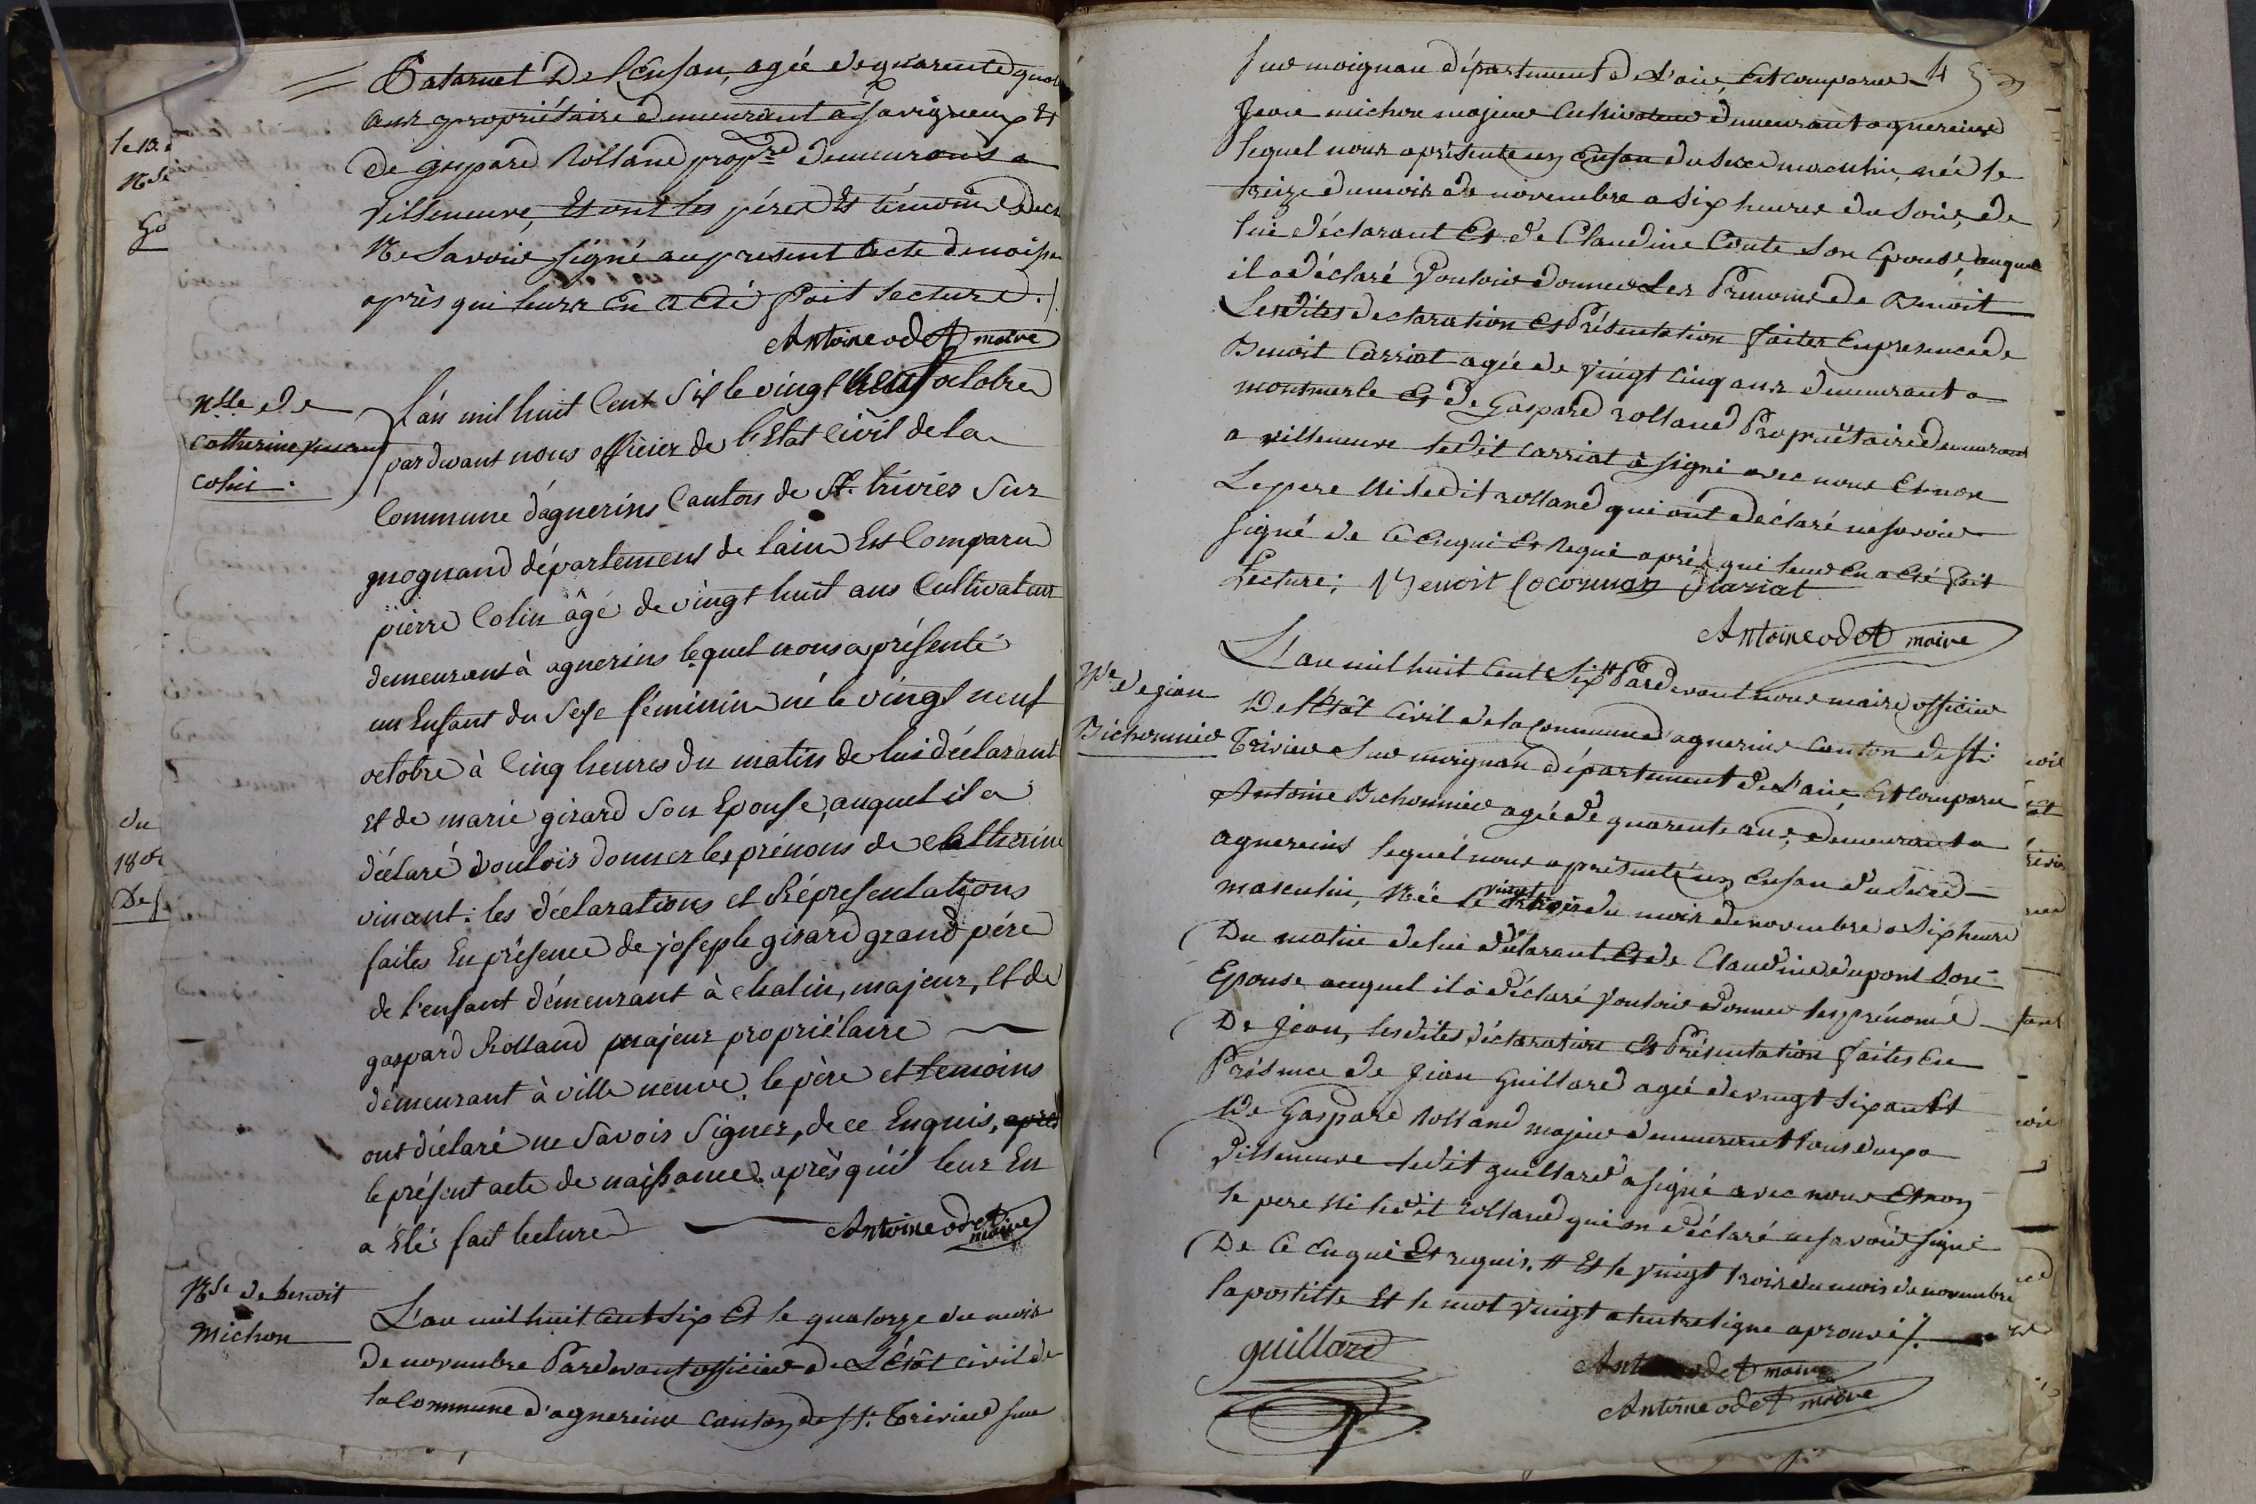 Paternel De l'Enfan, agée de quarente quat
ans propriétaire demeurant a Savigneux Et
de gaspard Rolland prop.re demeurans a
Villeneuve, Et ont les péres Et témoins
Ne Savoir signé au present acte de naissan
après qui leurs en a Eté fait lecture ./.
Antoine odet maire
le 13
N.de
n.lle de
Catherine vincent
Colin.
L'an mil huit Cent Six le vingt neuf octobre
pardevant nous officier de l'Etat Civil de la
Commune d'agnerins Canton de St. trivier Sur
mognand département de lain Est Comparu
pierre Colin âgé de vingt huit ans Cultivateur
demeurant à agnerins lequel nous a présenté
un Enfant du Sexe féminin né le vingt neuf
octobre à Cinq heures du matin de lui déclarant
et de marie girard Son Epouse, auquel il a
déclaré vouloir donner les prénoms de Catherine
vincent: les déclarations et Répresentations
faites En présence de joseph girard grand père
de l'enfant démeurant à chalin, majeur, et de
gaspard Rolland majeur propriétaire
démeurant à ville neuve. le père et temoins
ont déclaré ne Savoir Signer, de ce Enquis, après
le présent acte de naissance. après qu'il leur En
a Eté fait lecture
Antoine odet
maire
du
180
De
N.de de benoit
Michon
L'an mil huit Cent Six Et le quatorze du mois
de novembre Pardevant officier de L'Etât Civil de
la Commune d'agnereins Canton de St. Trivier sur
Sur moignan département de L'ain, Est comparus 4
Jean michon majeur Cultivateur demeurant agnereins
lequel nous a présenté un Enfan du Sexe masculin, née le
treize du mois de novembre a Six heures du Soir, de
lui déclarant Et de Claudine Conte Son Epouse, auquel
il a déclaré Vouloir donner Les Prenoms de Benoit
Lesdites declaration Et Présentation faites En presence de
Benoit Carriat agée de Vingt Cinq ans demeurant a
montmerle Et de Gaspard rolland Propriëtaire demeurans
a villeneuve ledit Carriat à signé avec nous Et non
Le pere Ni ledit rolland qui ont déclaré ne Savoir
signé de Ce enqui Et Requi après qui leur En a Eté fait
Lecture; Benoit Carriat
Antoine odet maire
N.ce de jean
Bichonnier
L'an mil huit Cent Six # Pardevant nous maire officier
De l'Etât Civil de la Commune d'agnereins Canton de St.
Trivier Sur moignan département de L'ain, Est Comparu
Antoine Bichonnier agée de quarente ans, demeurant a
agnereins lequel nous a présenté un Enfan du Sexe
masculin, Née le vingt trois du mois de novembre a Six heure
Du matin de lui déclarant Et de Claudine dupont Son
Epouse auquel il à déclaré Vouloir donner les prénoms
De Jean, lesdites déclaration Et Présentation faites En
Présence de Jean Guillard agée de vingt Six ans Et
De Gaspard Rolland majeur demeurant tous deux a
Villeneuve ledit guillard a signé avec nous Et non
le pere Ni ledit rolland qui on déclaré ne Savoir signé
De Ce Enqui Et requis. # Et le Vingt trois du mois de novembre
lapostille Et le mot Vingt a lentreligne aprouvé ./.
guillard
Antoine odet maire
Antoine odet maire